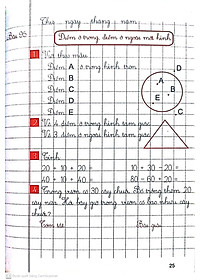 Thứ ngày tháng năm
Bài 95
Điểm ở trong, điểm ở ngoài một hình
1 Viết theo mẫu
Điểm A ở trong hình tròn
Điểm B
Điểm C
Điểm D
Điểm E
D
A
B
E
C
2 Vẽ 4 điểm ở trong hình tam giác
Vẽ 3 điểm ở ngoài hình tam giác
3 Tính
20 + 10 + 20 = 10 + 30 - 20 =
40 + 10 + 40 = 80 - 60 + 20 =
4 Trong vườn có 30 cây chuối. Bố trồng thêm 20
cây nữa. Hỏi bây giờ trong vườn có bao nhiêu cây
chuối?
Tóm tắt Bài giải
25